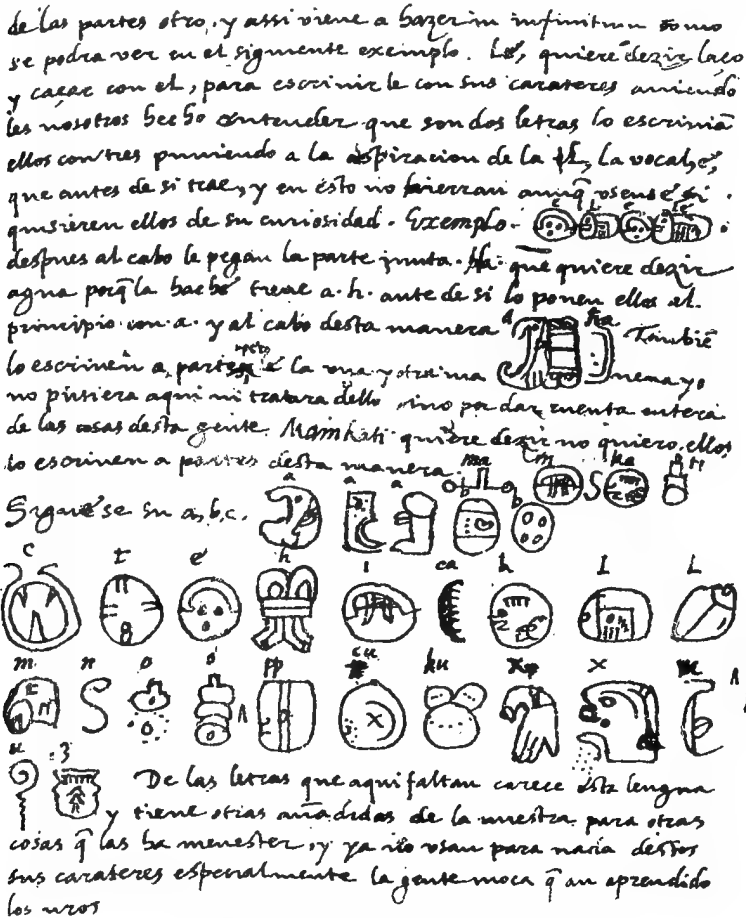 de las partes otro, y assi viene a hazer in infinitum como
se podra ver en el siguiente exemplo. Lé, quiere dezir laço
y caçar con el, para escrivirle con sus carateres aviendo
les nosotros hecho entender que son dos letras lo escrivian
ellos con tres puniendo a la aspiracion de la l, la vocal, é,
que antes de si trae, y en esto no hierran aunq̃ usense si
quisieren ellos de su curiosidad. Exemplo. e L e Lé
despues al cabo le pegan la parte junta. Ha. que quiere dezir
agua porq̃ la hache tiene a. h. ante de si lo ponen ellos al
principio con a. y al cabo desta manera a ha Tambiẽ
lo escriven a partes la una y otra ma nera yo
no pusiera aqui ni tratara dello sino por dar cuenta entera
de las cosas desta gente. Mainkati quiere dezir no quiero, ellos
lo escriven a partes desta manera. ma in ka ti
Siguese su a, b, c. a a a b b
c t é h i ca k l l
m n o o pp cu ku x x
u z De las letras que aqui faltan carece esta lengua
y tiene otras añadidas de la nuestra para otras
cosas q̃ las ha menester, y ya no usan para nada destos
sus carateres especialmente la gente moça q̃ an aprendido
los nros